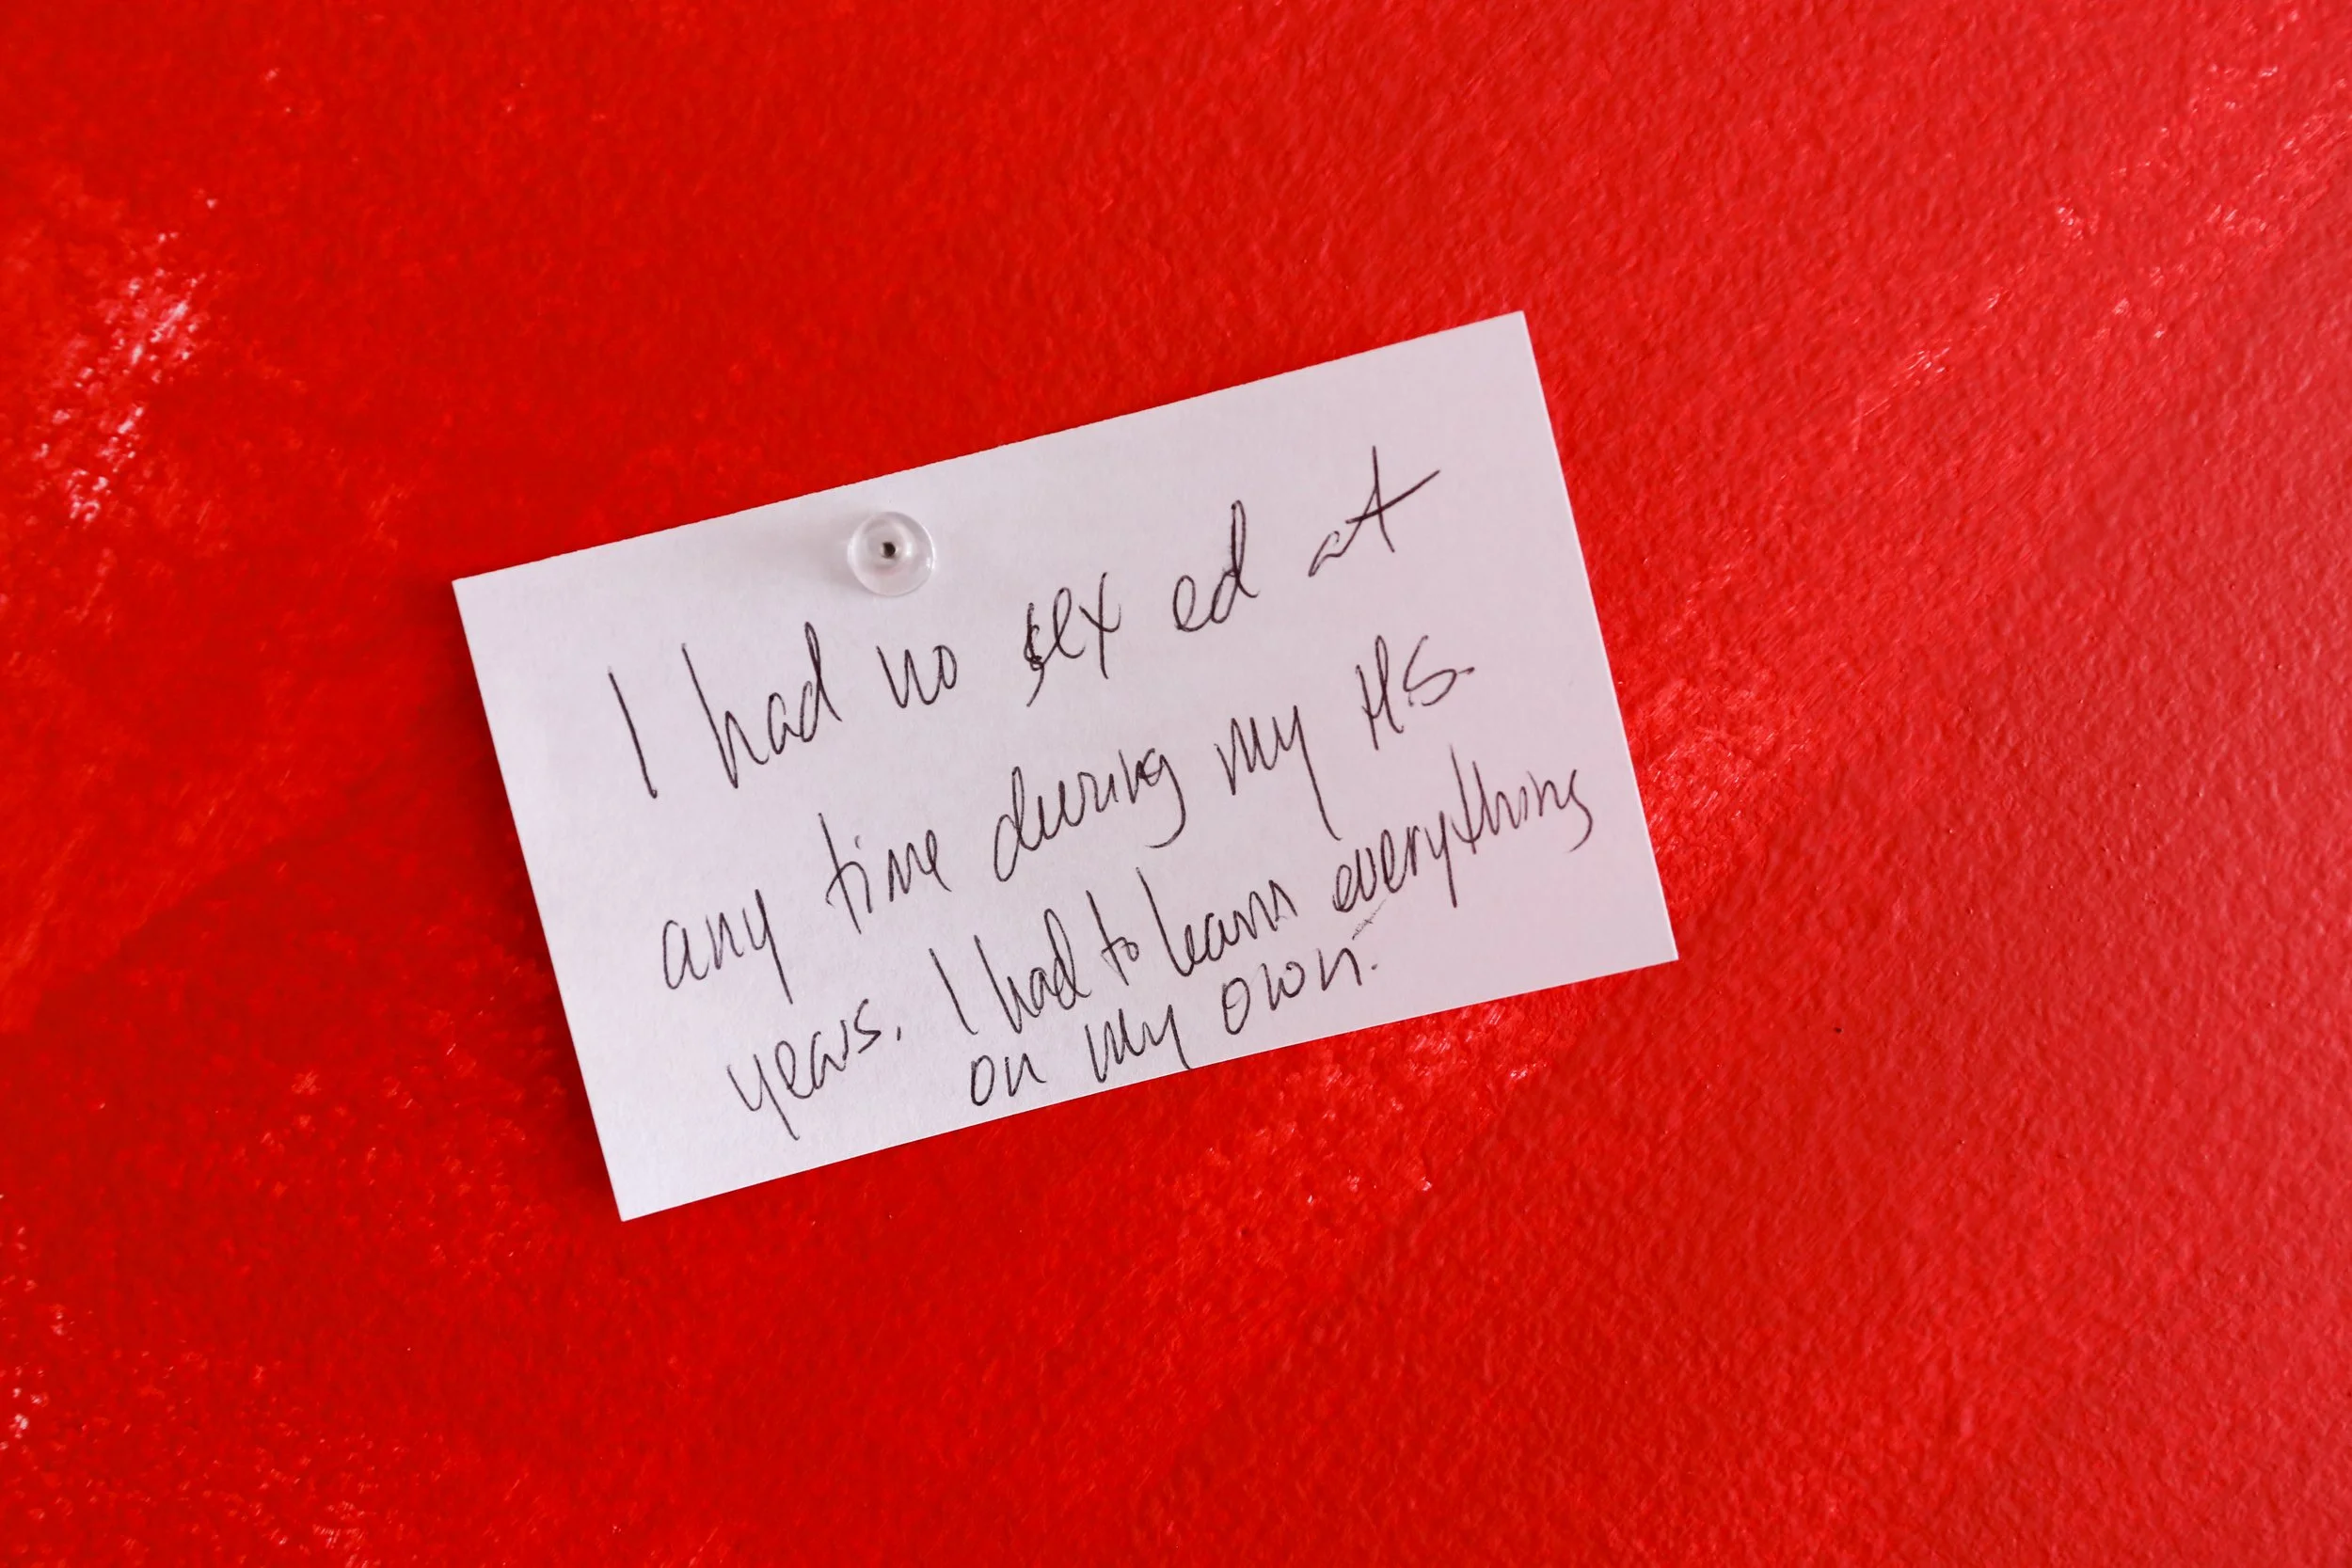 I had no sex ed at
any time during my H.S.
years. I had to learn everything
on my own.